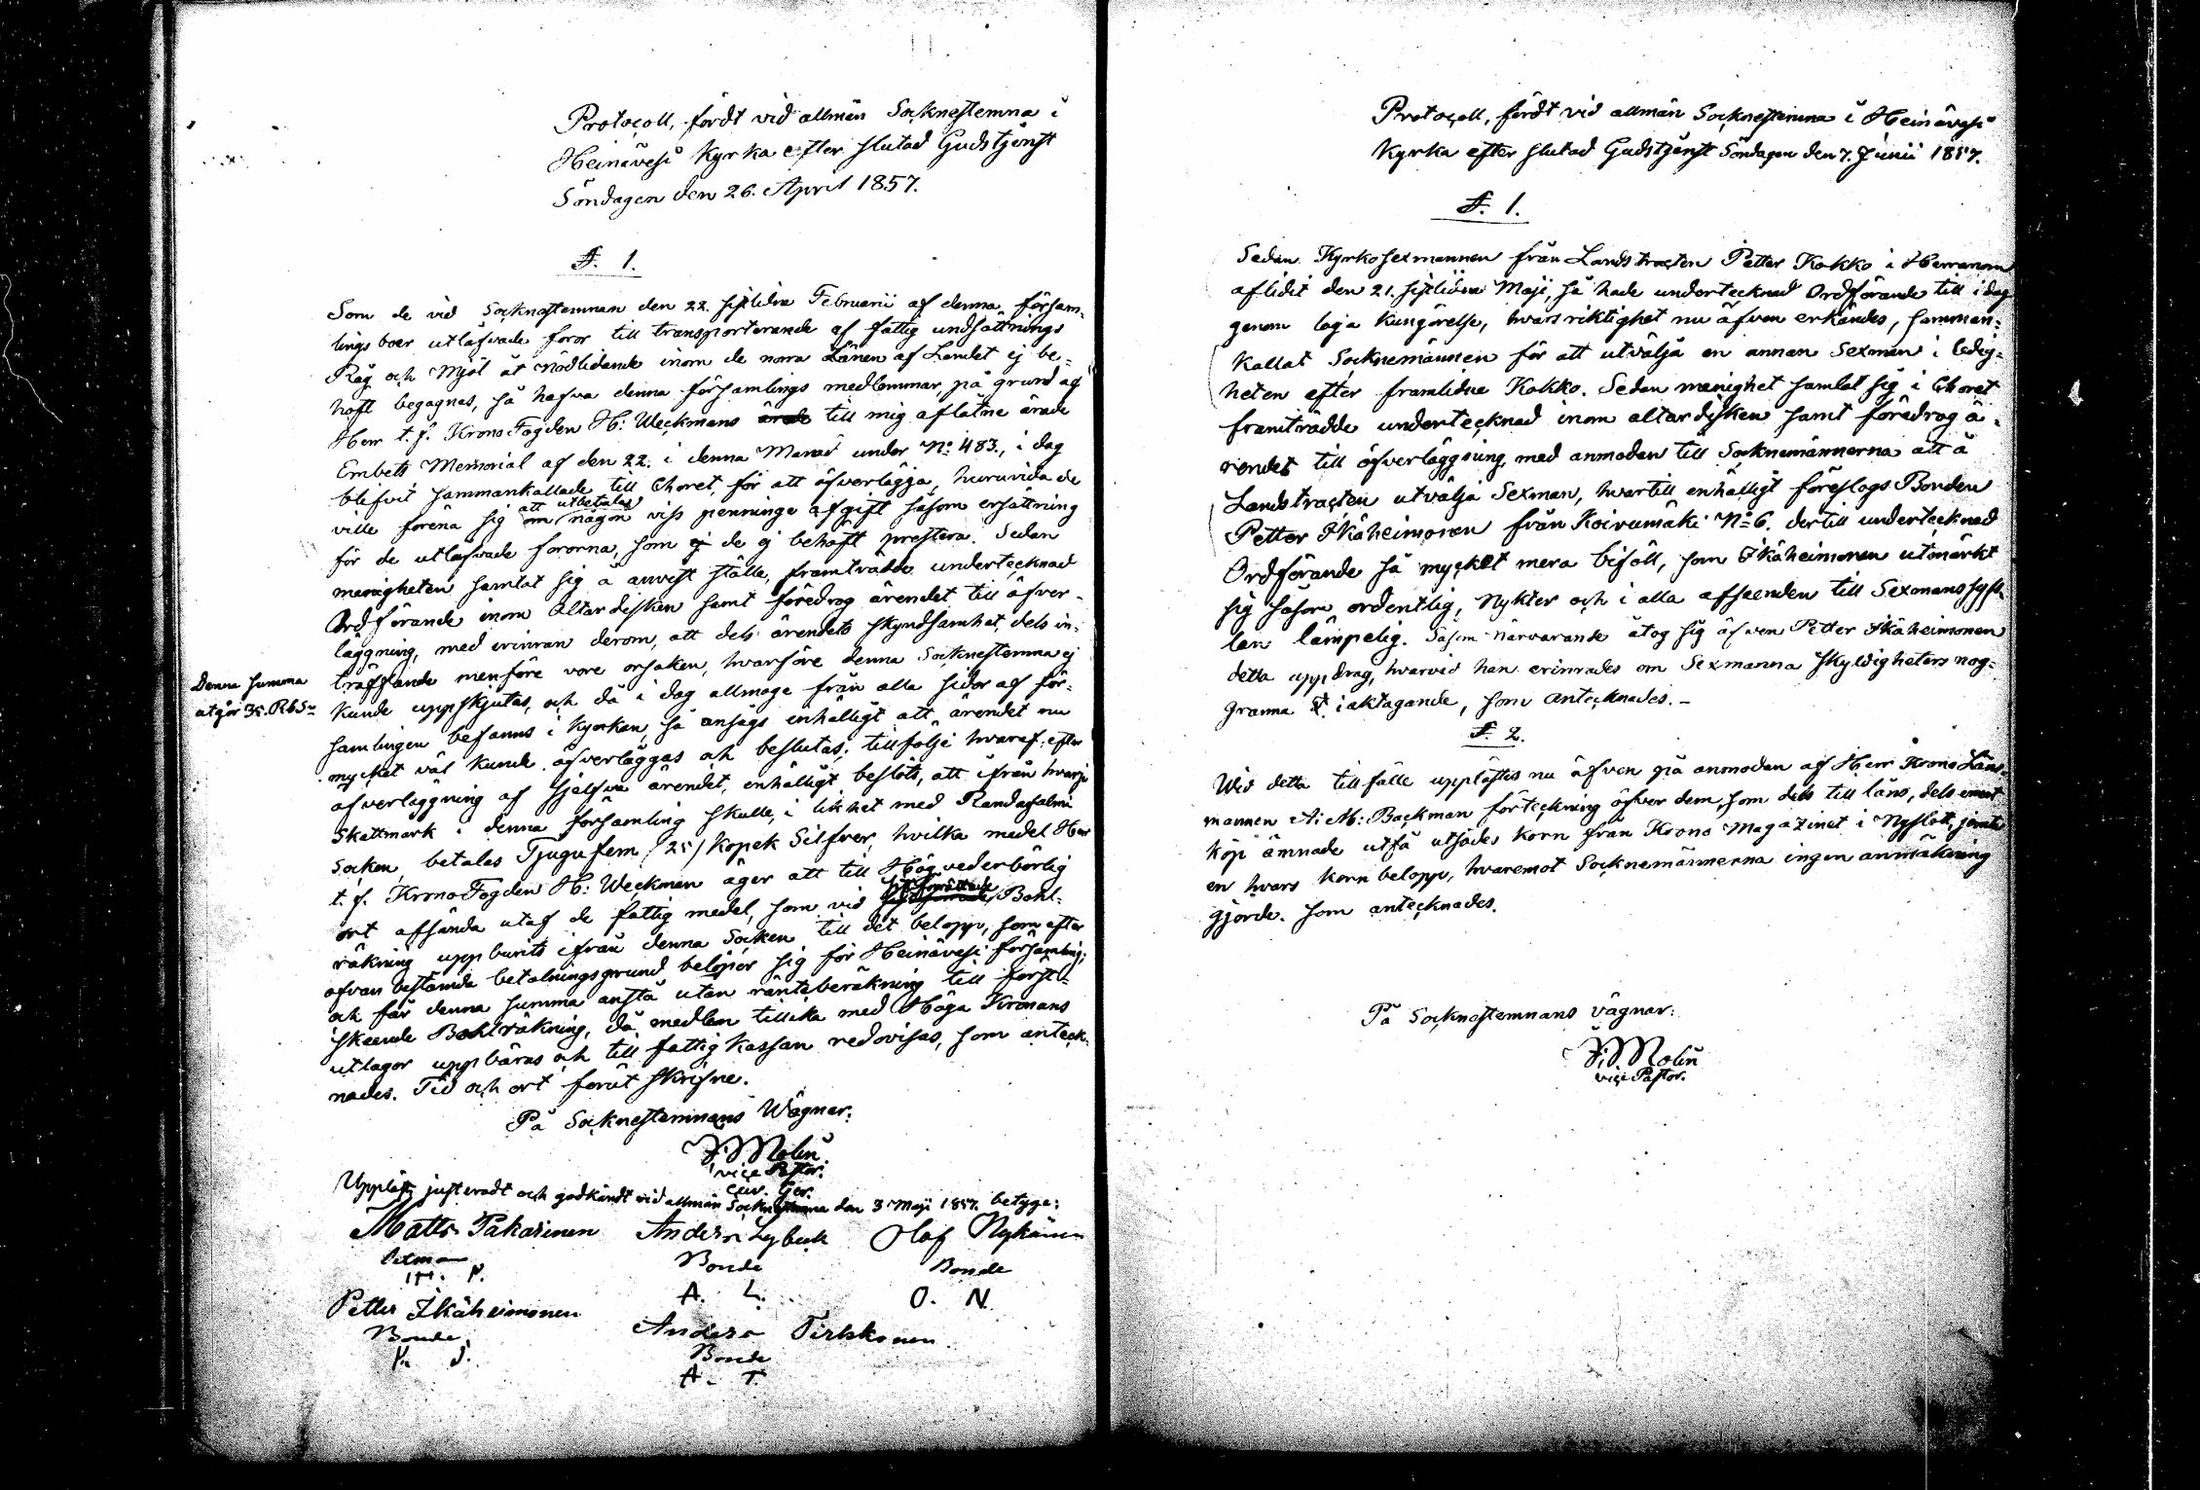 Protocoll, fördt vid allmän Socknestemna i
Heinävesi Kyrka efter slutad Gudstjenst
Söndagen den 26. April 1857.
§. 1.
Som de vid Socknestemnan den 22. sistlidne Februarii af denna försam-
lings boer utlåfvade foror till transporterande af fattig undsättnings
Råg och Mjöl åt nödlidande inom de norra Länen af Landet ej be-
höft begagnas, så hafva denna församlings medlemmar, på grund af
Herr t. f. Krono Fogden H: Weckmans till mig aflåtne ärade
Embets Memorial af den 22. i denna Månad under No: 483., i dag
blifvit sammankallade till Choret, för att öfverlägga, huruvida de
ville förena sig om att utbetalas någon viss penninge afgift såsom ersättning
för de utlåfvade fororna, som ej de ej behöft prestera. Sedan
menigheten samlat sig å anvist ställe, framträdde undertecknad
Ordförande inom Altardisken samt föredrog ärendet till öfver-
läggning, med erinran derom, att dels ärendets skyndsamhet, dels in-
träffande menföre vore orsaken, hvarföre denna Socknestemna ej
Denna summa
utgör 35. Rb Sr
kunde uppskjutas, och då i dag allmoge från alla sidor af för-
samlingen befanns i kyrkan, så ansågs enhälligt att ärendet nu
mycket väl kunde öfverläggas och beslutas; tillfölje hvaraf, efter
öfverläggning af sjelfva ärendet, enhälligt beslöts, att ifrån hvarje
Skattmark i denna församling skulle, i likhet med Randasalmi
Socken, betalas Tjugufem /25/ Kopek Silfver, hvilka medel Herr
t. f. Krono Fogden H: Weckman äger att till Hög vederbörlig
ort afsända utaf de fattig medel, som vid Bohl-
räkning uppburits ifrån denna Socken till det belopp, som efter
ofvan bestämda betalningsgrund belöper sig för Heinävesi församling;
och får denna summa anstå utan ränteberäkning till först-
skeende Bohlräkning, då medlen tillika med Höga Kronans
utlagor uppbäras och till fattig Kassan redovisas, som anteck-
nades. Tid och ort förut skrifne.
På Socknestemnans Wägnar:
J. Molin
vice Pastor.
Uppläst, justeradt och godkändt vid allmän Socknestemna den 3 Maji 1857. betyga:
Matts Pakarinen Anders Lybeck Olof Nykänen
Sexman Bonde Bonde
M. P. A. L. O. N.
Petter Ikäheimonen Anders Tirkkonen
Bonde Bonde
P. I. A. T.
Protocoll, fördt vid allmän Socknestemna i Heinävesi
Kyrka efter slutad Gudstjenst Söndagen den 7. Junii 1857.
§. 1.
Sedan Kyrkosexmannen från Landstracten Petter Kokko i Herranom
aflidit den 21. sistlidne Maji, så hade undertecknad Ordförande till i dag
genom laga kungörelse, hvars riktighet nu äfven erkändes, samman-
kallat Socknemännen för att utvälja en annan Sexman i ledig-
heten efter framlidne Kokko. Sedan menighet samlat sig i Choret
framträdde undertecknad inom altardisken samt föredrog ä-
rendet till öfverläggning, med anmodan till Socknemännerna att å
Landstracten utvälja Sexman, hvartill enhälligt föreslogs Bonden
Petter Ikäheimonen från Koivumäki No 6. dertill undertecknad
Ordförande så mycket mera biföll, som Ikäheimonen utmärkt
sig såsom ordentlig, nykter och i alla afseenden till Sexmanssyss-
lan lämpelig. Såsom närvarande åtog sig äfven Petter Ikäheimonen
detta uppdrag, hvarvid han erinrades om Sexmanna skyldigheters nog-
granna iakttagande, som antecknades.-
§. 2.
Wid detta tillfälle upplästes nu äfven på anmodan af Herr Krono Läns-
mannen A: M: Backman förteckning öfver dem, som dels till låns, dels emot
köp ämnade utfå utsädes korn från Krono Magazinet i Nyslott, jemte
en hvars korn belopp, hvaremot Socknemännerna ingen anmärkning
gjorde. Som antecknades.
På Socknestemnans vägnar:
J. Molin
vice Pastor.